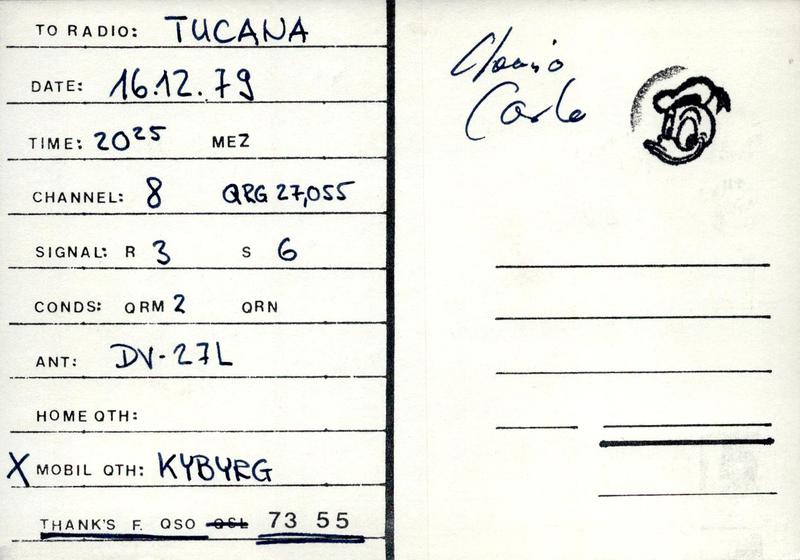 TO RADIO: TUCANA
DATE: 16.12.79
TIME: 20²⁵ MEZ
CHANNEL: 8 QRG 27,055
SIGNAL: R 3 S 6
CONDS: QRM 2 QRN
ANT: DV-27L
HOME QTH:
X MOBIL QTH: KYBYRG
THANK'S F. QSO QSL 73 55